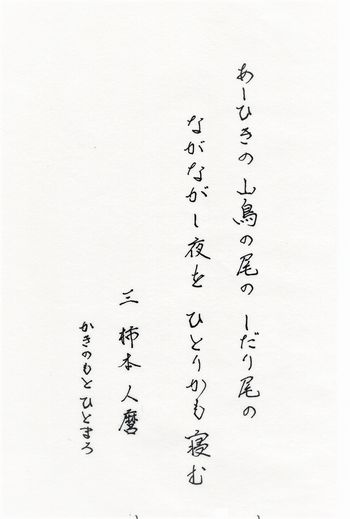 あしひきの 山鳥の尾の しだり尾の
ながながし夜を ひとりかも 寝む
三 柿本 人麿
かきのもと ひとまろ